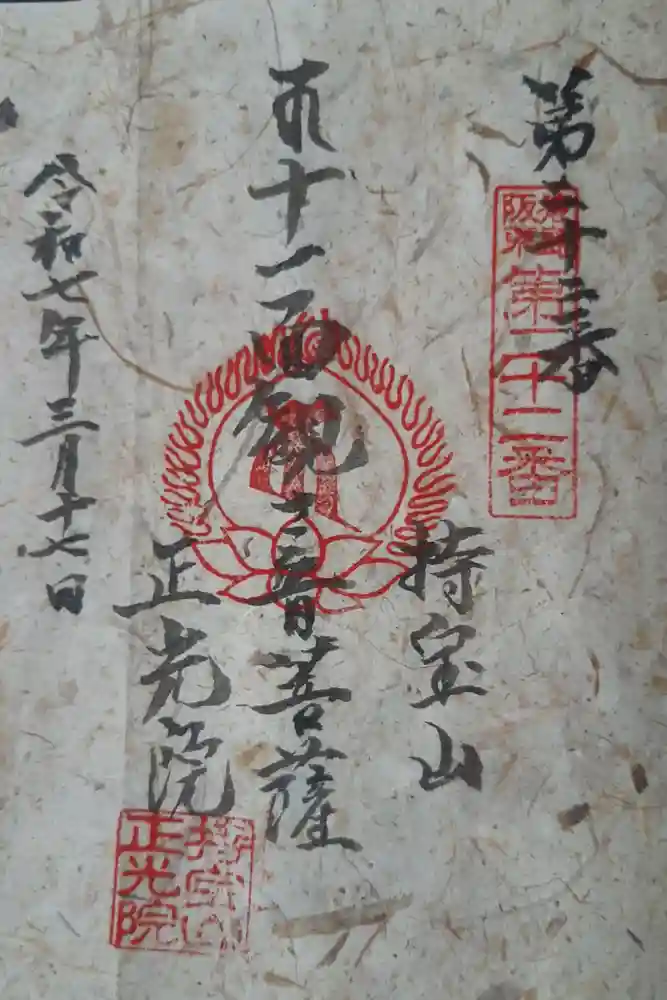 第二十二番
第二十二番
持宝山
十一面観世音菩薩
正光院
持宝山
正光院
令和七年三月十七日